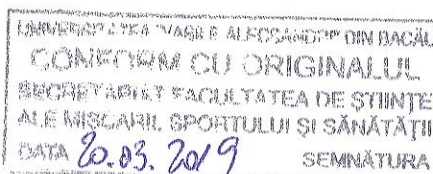 UNIVERSITATEA "VASILE ALECSANDRI" DIN BACĂU
CONFORM CU ORIGINALUL
SECRETARIAT FACULTATEA DE ȘTIINȚE
ALE MIȘCĂRII, SPORTULUI ȘI SĂNĂTĂȚII
DATA 20.03.2019 SEMNĂTURA